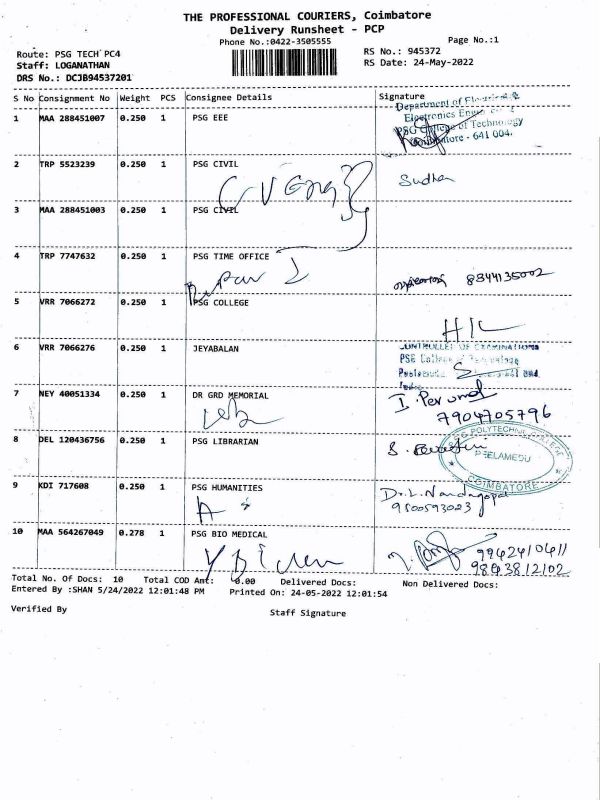 THE PROFESSIONAL COURIERS, Coimbatore
Delivery Runsheet - PCP
Phone No.:0422-3505555
Page No.:1
Route: PSG TECH PC4
RS No.: 945372
Staff: LOGANATHAN
RS Date: 24-May-2022
DRS No.: DCJB94537201
S No Consignment No Weight PCS Consignee Details Signature
1 MAA 288451007 0.250 1 PSG EEE
Department of Electrical &
Electronics
PSG College of Technology
Coimbatore - 641 004.
2 TRP 5523239 0.250 1 PSG CIVIL
Sudha
3 MAA 288451003 0.250 1 PSG CIVIL
4 TRP 7747632 0.250 1 PSG TIME OFFICE
8344135002
5 VRR 7066272 0.250 1 PSG COLLEGE
6 VRR 7066276 0.250 1 JEYABALAN
CONTROLLER OF EXAMINATIONS
PSG College of Technology
7 NEY 40051334 0.250 1 DR GRD MEMORIAL
I. Perumal
7904705796
8 DEL 120436756 0.250 1 PSG LIBRARIAN
PSG POLYTECHNIC COLLEGE
PEELAMEDU
COIMBATORE
9 KDI 717608 0.250 1 PSG HUMANITIES
Dr. L. Nandagopal
9500593023
10 MAA 564267049 0.278 1 PSG BIO MEDICAL
9942410411
9843812102
Total No. Of Docs: 10 Total COD Amt: 0.00 Delivered Docs: Non Delivered Docs:
Entered By :SHAN 5/24/2022 12:01:48 PM Printed On: 24-05-2022 12:01:54
Verified By
Staff Signature